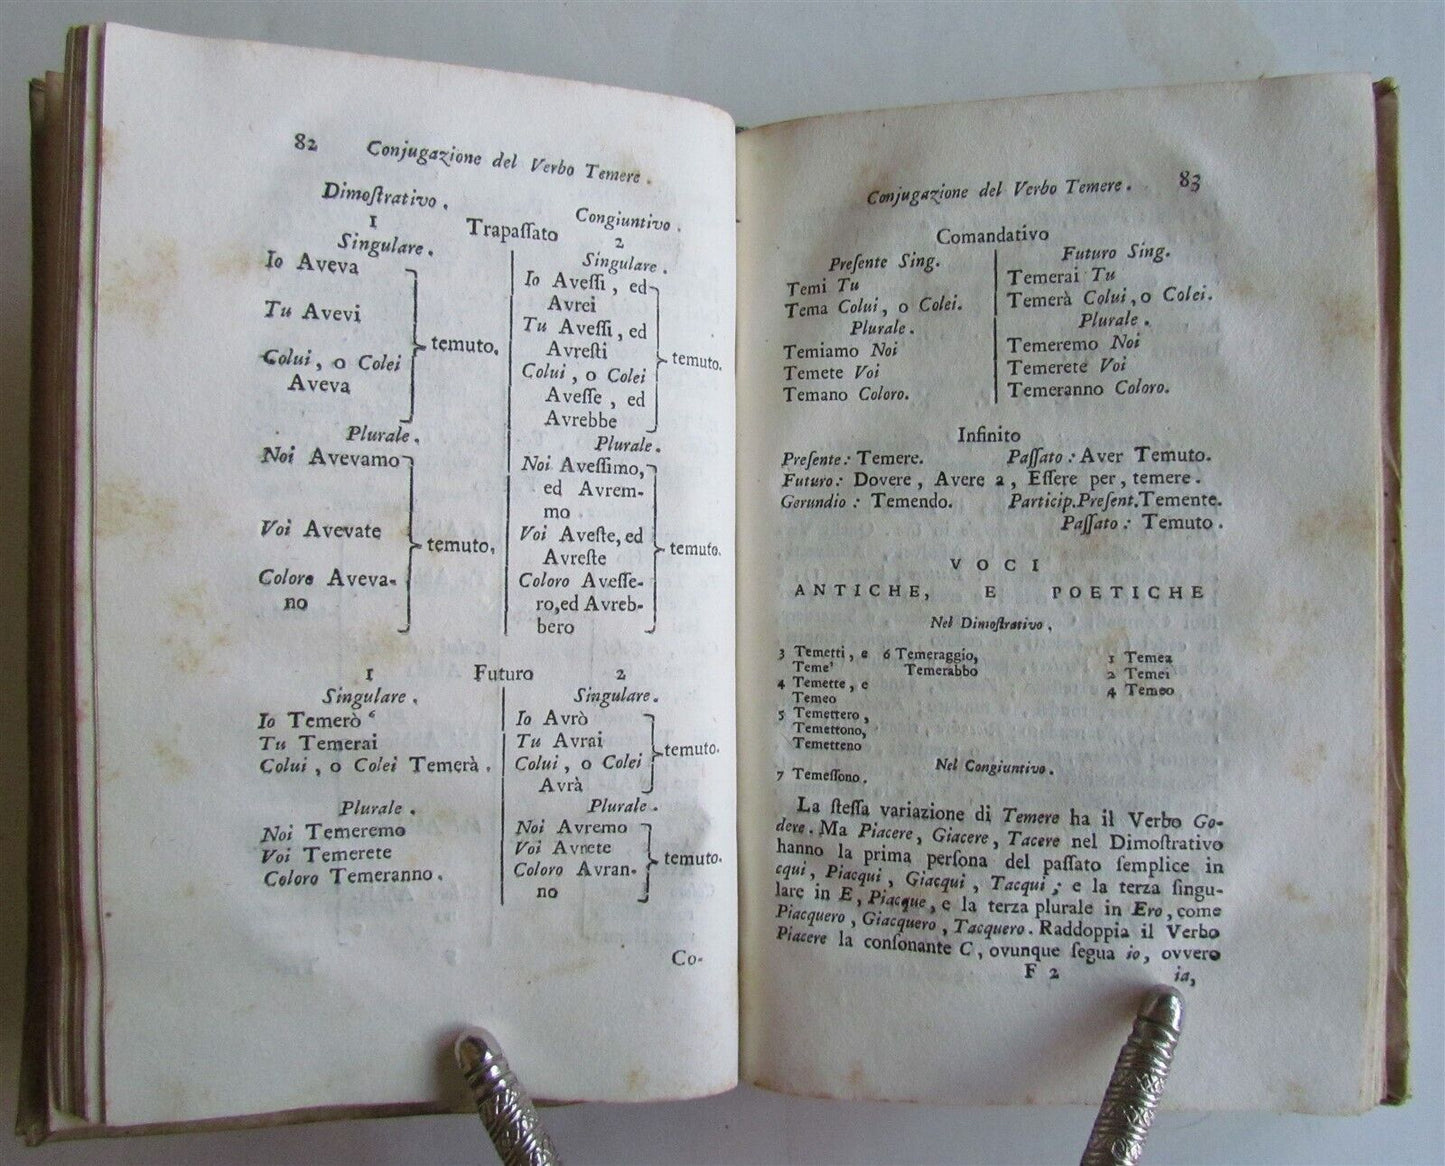 82 Conjugazione del Verbo Temere.
Dimoſtrativo. Congiuntivo.
1 Trapaſſato 2
Singulare. Singulare.
Io Aveva
Tu Avevi
Colui, o Colei
Aveva
temuto.
Plurale.
Noi Avevamo
Voi Avevate
Coloro Aveva-
no
temuto.
Io Aveſſi, ed
Avrei
Tu Aveſſi, ed
Avreſti
Colui, o Colei
Aveſſe, ed
Avrebbe
temuto.
Plurale.
Noi Aveſſimo,
ed Avrem-
mo
Voi Aveſte, ed
Avreſte
Coloro Aveſſe-
ro, ed Avreb-
bero
temuto.
1 Futuro 2
Singulare. Singulare.
Io Temerò 6
Tu Temerai
Colui, o Colei Temerà.
Plurale.
Noi Temeremo
Voi Temerete
Coloro Temeranno.
Io Avrò
Tu Avrai
Colui, o Colei
Avrà
temuto.
Plurale.
Noi Avremo
Voi Avrete
Coloro Avran-
no
temuto.
Co-
Conjugazione del Verbo Temere. 83
Comandativo
Preſente Sing.
Temi Tu
Tema Colui, o Colei.
Plurale.
Temiamo Noi
Temete Voi
Temano Coloro.
Futuro Sing.
Temerai Tu
Temerà Colui, o Colei.
Plurale.
Temeremo Noi
Temerete Voi
Temeranno Coloro.
Infinito
Preſente: Temere. Paſſato: Aver Temuto.
Futuro: Dovere, Avere a, Eſſere per, temere.
Gerundio: Temendo. Particip. Preſent. Temente.
Paſſato: Temuto.
VOCI
ANTICHE, E POETICHE
Nel Dimoſtrativo.
3 Temetti, e
Teme'
4 Temette, e
Temeo
5 Temettero,
Temettono,
Temetteno
6 Temeraggio,
Temerabbo
1 Temea
2 Temei
4 Temeo
Nel Congiuntivo.
7 Temeſſono.
La ſteſſa variazione di Temere ha il Verbo Go-
dere. Ma Piacere, Giacere, Tacere nel Dimoſtrativo
hanno la prima perſona del paſſato ſemplice in
cqui, Piacqui, Giacqui, Tacqui; e la terza ſingu-
lare in E, Piacque, e la terza plurale in Ero, come
Piacquero, Giacquero, Tacquero. Raddoppia il Verbo
Piacere la conſonante C, ovunque ſegua io, ovvero
F 2 ia,